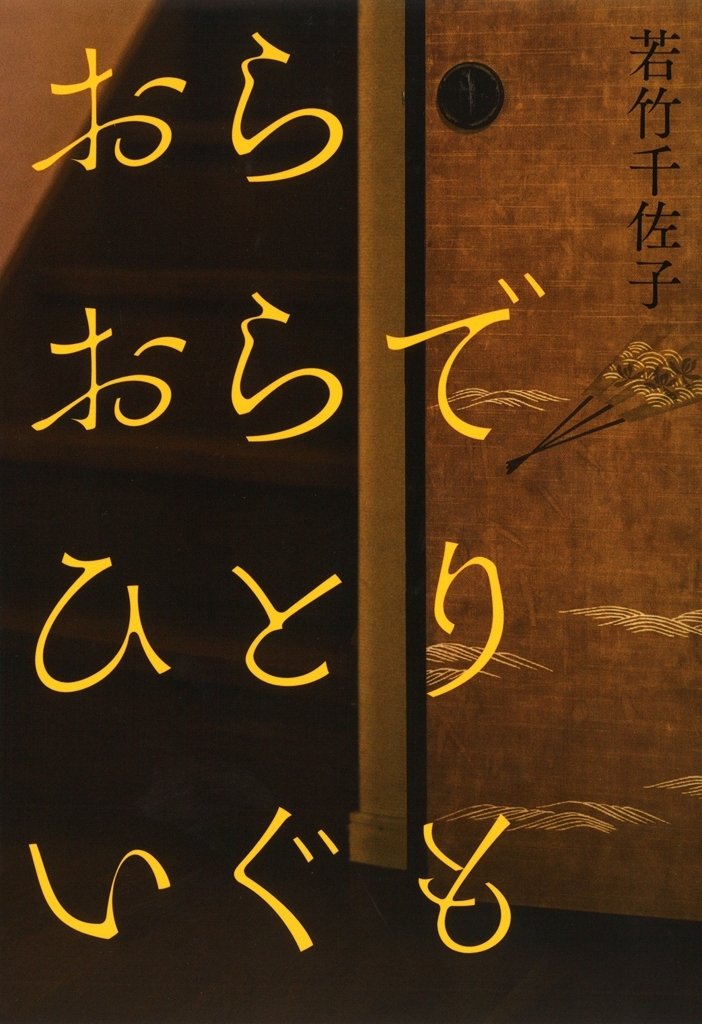 おら
おらで
ひとり
いぐも
若竹千佐子